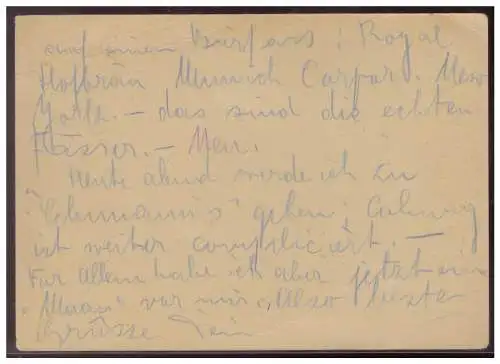 auf einen Bierfass: Royal
Hofbräu Munich Carpar. New
York. — das sind die echten
Fässer. — Nein.
Heute abend werde ich zu
"Lehmann's" gehen;
ist weiter compliciert. —
Vor Allem habe ich aber jetzt ein
"Maass" vor mir. Also beste
Grüsse Dein